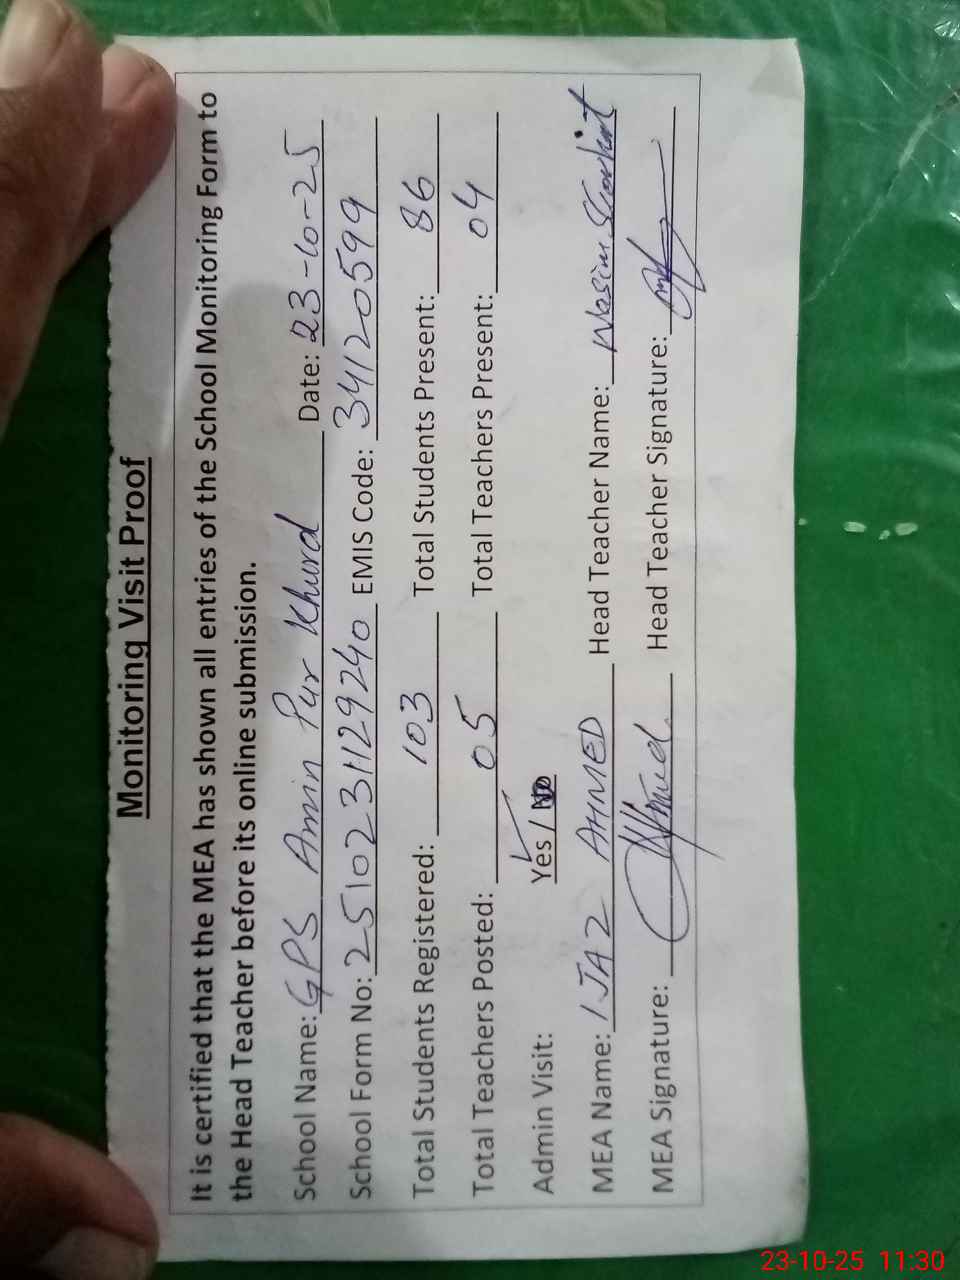 Monitoring Visit Proof
It is certified that the MEA has shown all entries of the School Monitoring Form to
the Head Teacher before its online submission.
School Name: GPS Amin Pur Khurd Date: 23-10-25
School Form No: 2510231129240 EMIS Code: 34120599
Total Students Registered: 103 Total Students Present: 86
Total Teachers Posted: 05 Total Teachers Present: 04
Admin Visit: Yes / No
MEA Name: IJAZ AHMED Head Teacher Name: Nasim
MEA Signature: Head Teacher Signature:
23-10-25 11:30